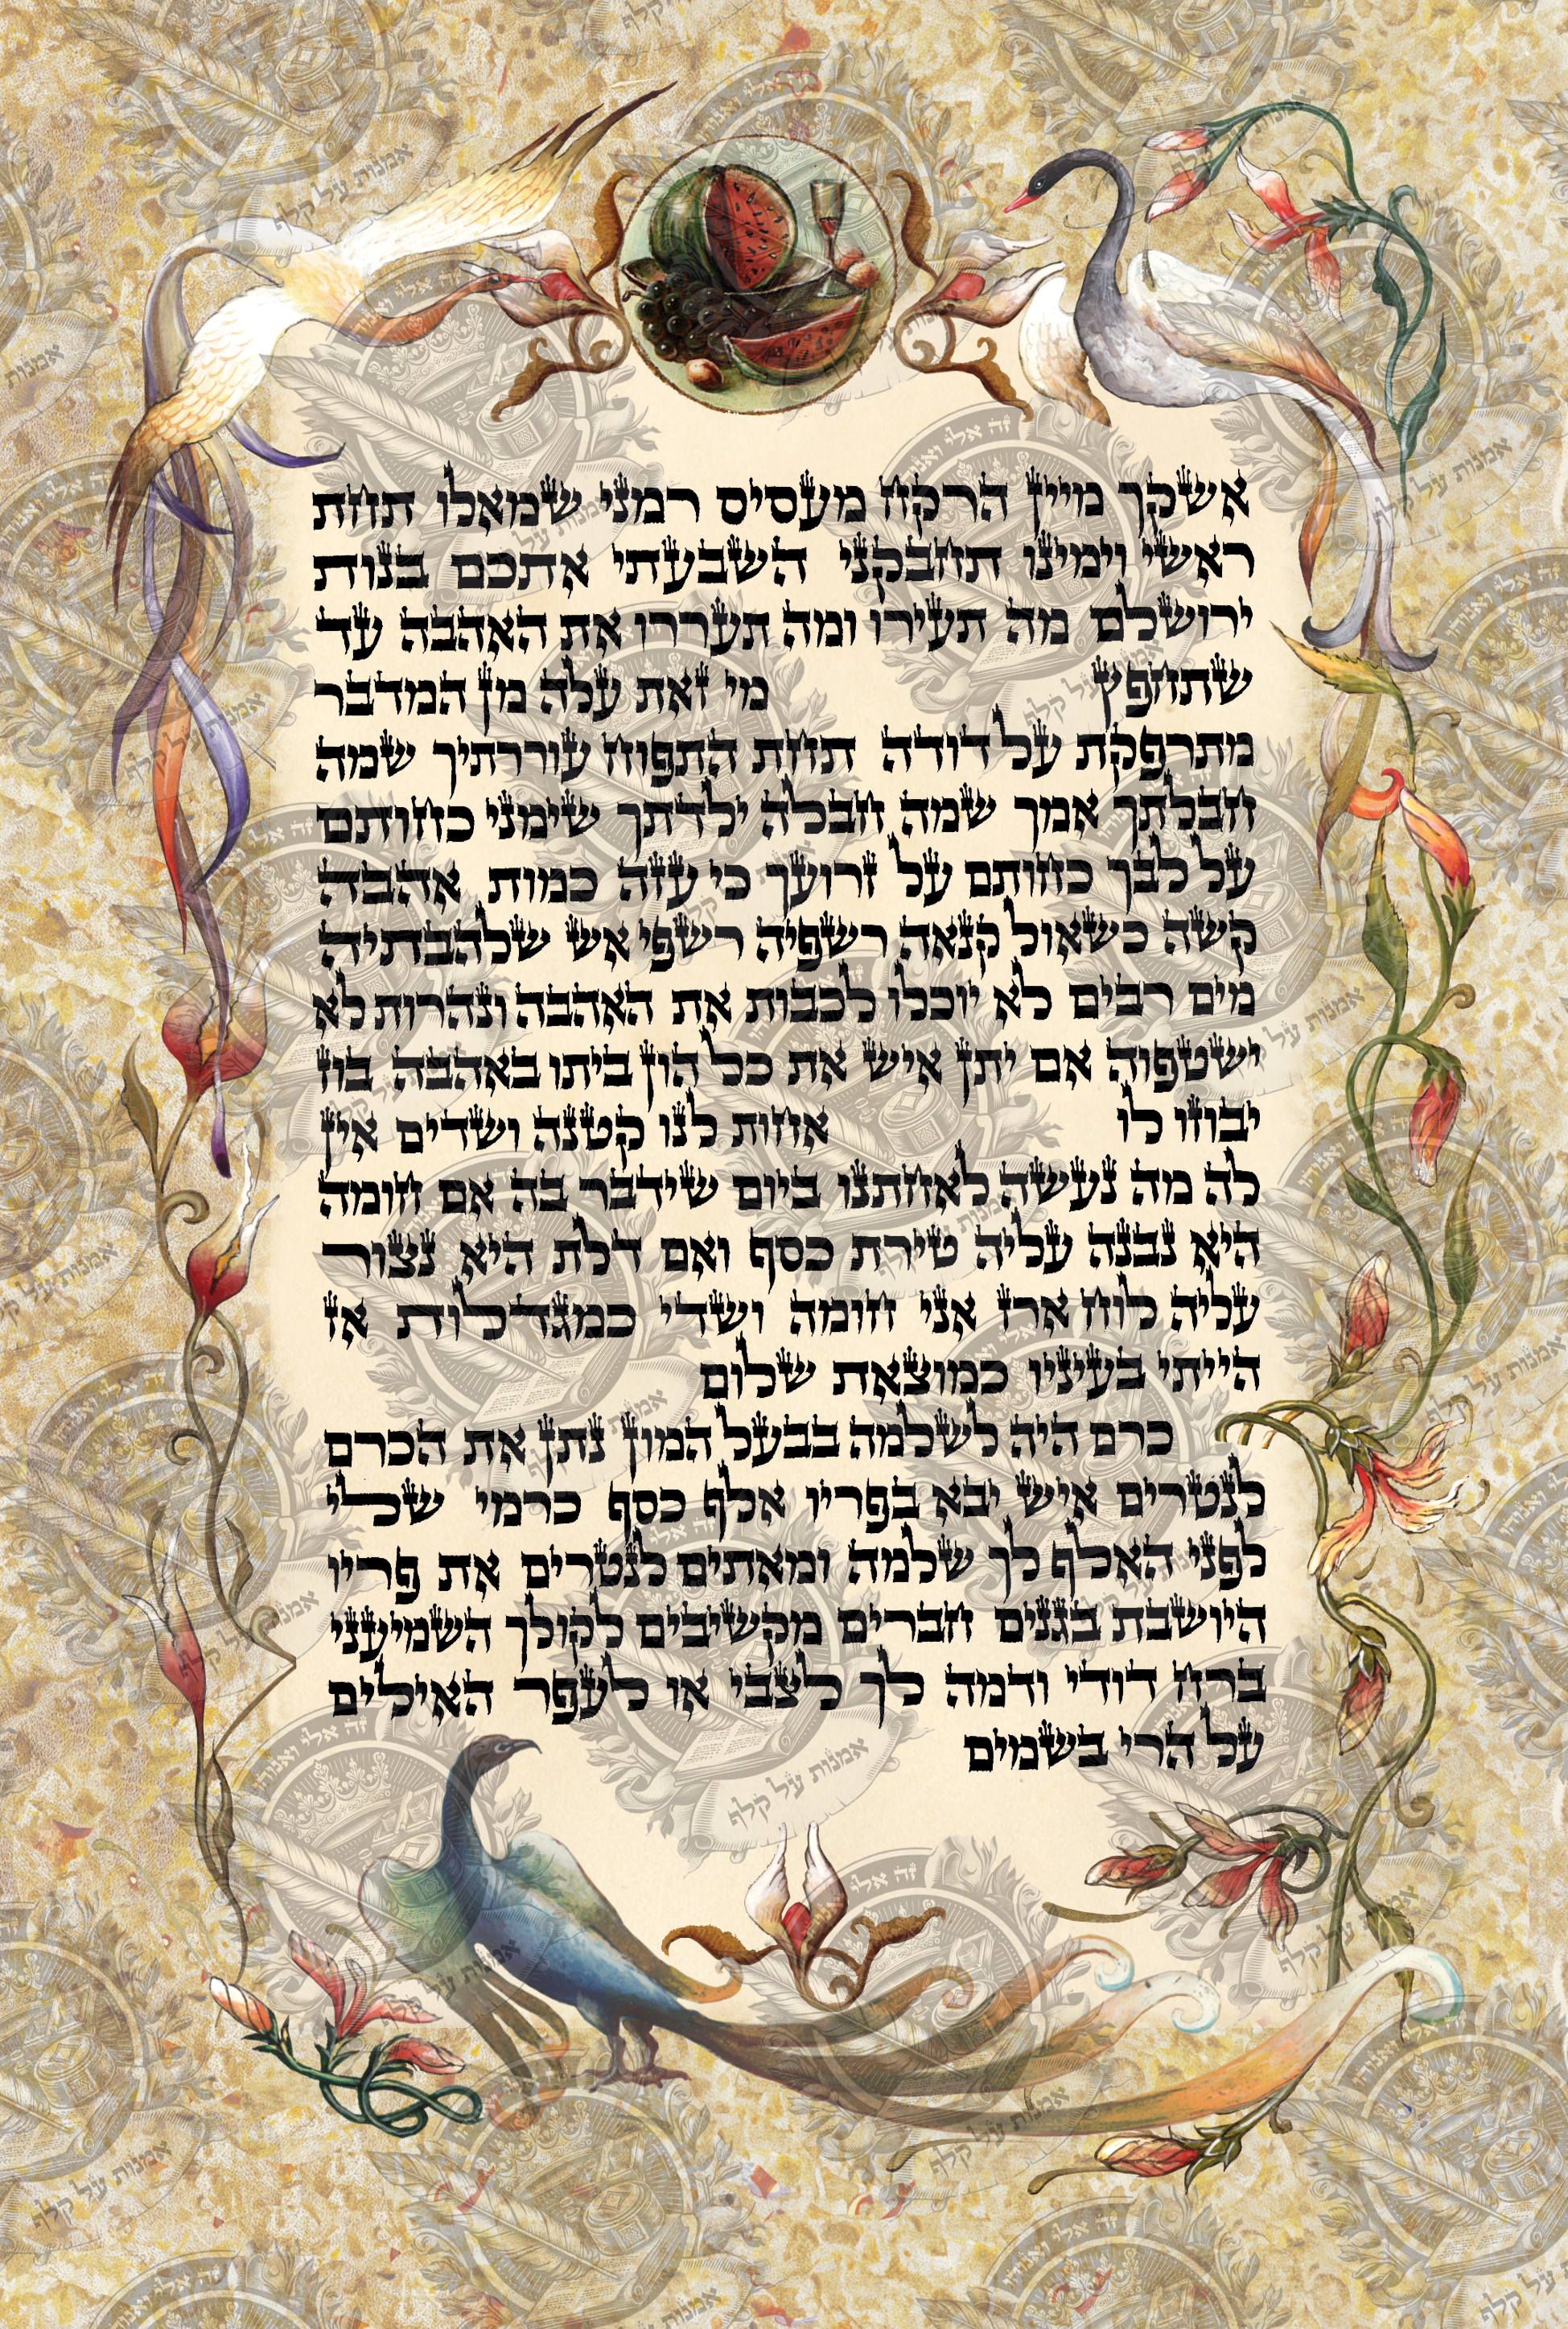 אשקך מיין הרקח מעסיס רמני שמאלו תחת
ראשי וימינו תחבקני השבעתי אתכם בנות
ירושלם מה תעירו ומה תעררו את האהבה עד
שתחפץ מי זאת עלה מן המדבר
מתרפקת על דודה תחת התפוח עוררתיך שמה
חבלתך אמך שמה חבלה ילדתך שימני כחותם
על לבך כחותם על זרועך כי עזה כמות אהבה
קשה כשאול קנאה רשפיה רשפי אש שלהבתיה
מים רבים לא יוכלו לכבות את האהבה ונהרות לא
ישטפוה אם יתן איש את כל הון ביתו באהבה בוז
יבוזו לו אחות לנו קטנה ושדים אין
לה מה נעשה לאחתנו ביום שידבר בה אם חומה
היא נבנה עליה טירת כסף ואם דלת היא נצור
עליה לוח ארז אני חומה ושדי כמגדלות אז
הייתי בעיניו כמוצאת שלום
כרם היה לשלמה בבעל המון נתן את הכרם
לנטרים איש יבא בפריו אלף כסף כרמי שלי
לפני האלף לך שלמה ומאתים לנטרים את פריו
היושבת בגנים חברים מקשיבים לקולך השמיעני
ברח דודי ודמה לך לצבי או לעפר האילים
על הרי בשמים
אמנות על קלף